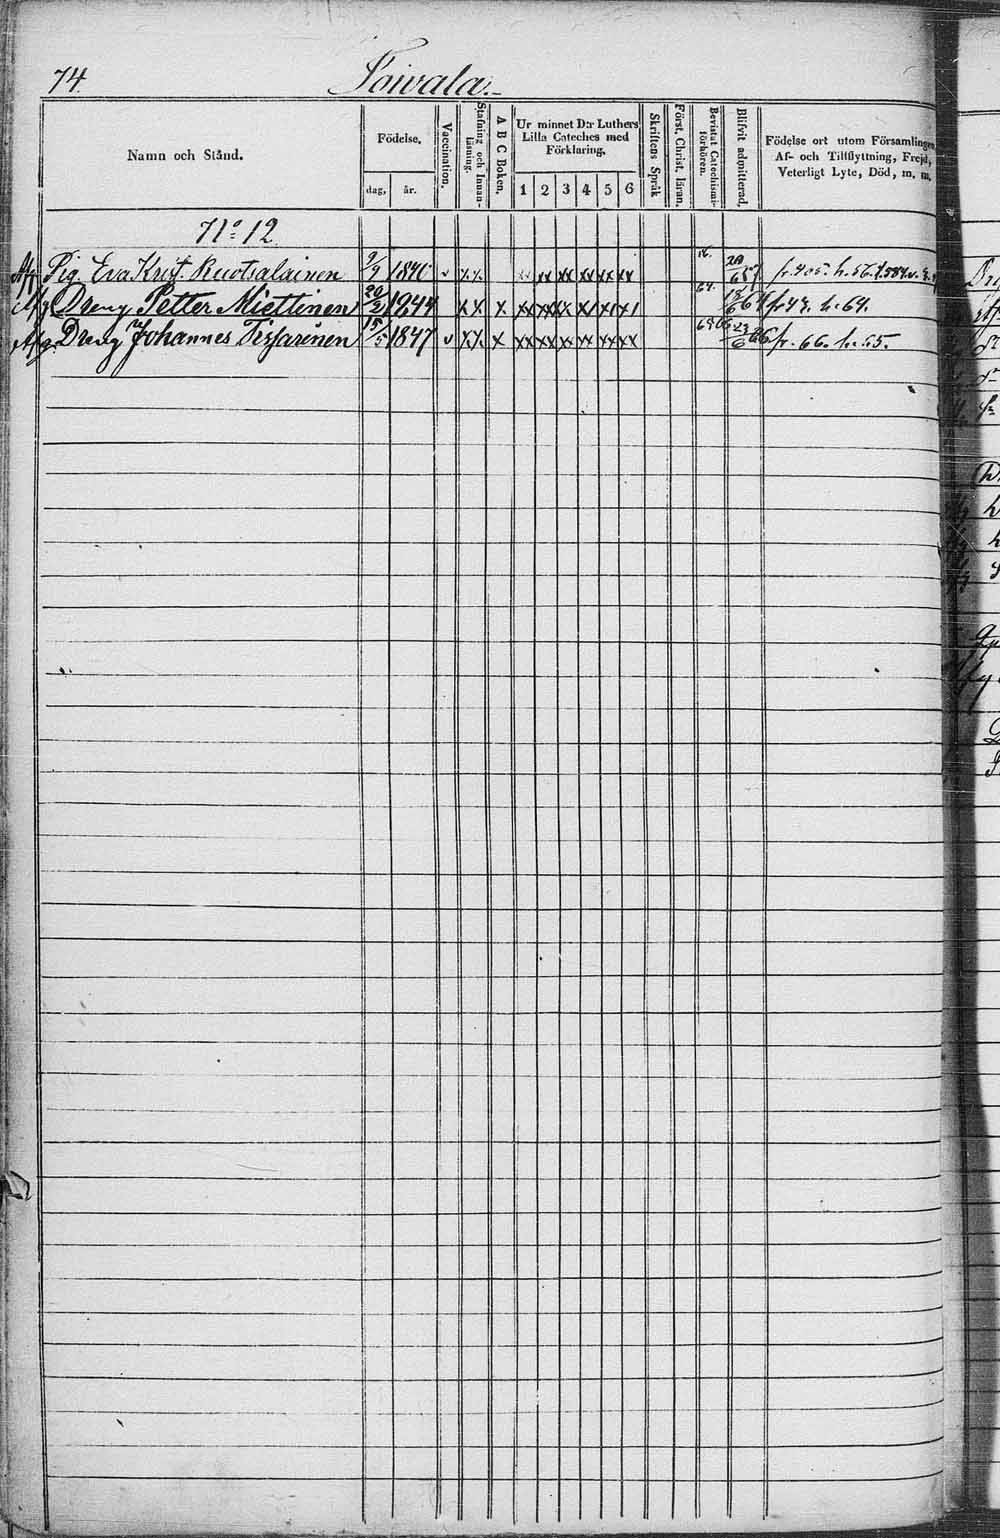 74
Toivala.
Namn och Stånd.
Födelse.
dag,
år.
Vaccination.
Stafning och Innan-
läsning.
A B C Boken.
Ur minnet D:r Luthers
Lilla Cateches med
Förklaring.
1 2 3 4 5 6
Skriftens Språk
Först. Christ. läran.
Bevistat Catechismi-
förhören.
Blifvit admitterad.
Födelse ort utom Församlingen,
Af- och Tillflyttning, Frejd,
Veterligt Lyte, Död, m. m.
No 12
Pig. Eva Krist. Ruotsalainen 9/9 1840 v x x xx xx xx xx xx xx
Dreng Petter Miettinen 20/2 1844 x x x xx xx xx xx xx xx 64. fr 43. h. 64.
Dreng Johannes 15/5 1847 v x x x xx xx xx xx xx xx 23/6 66 fr. 66. h. 55.